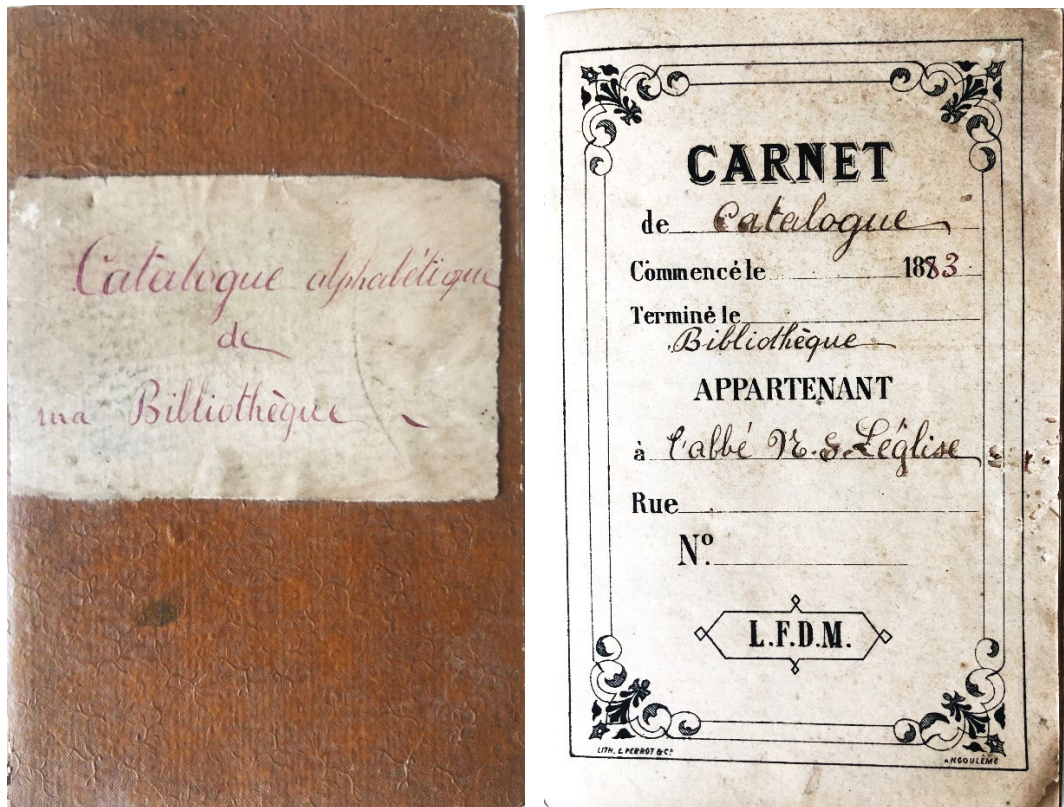 Catalogue alphabétique
de
ma Bibliothèque
CARNET
de Catalogue
Commencé le 1883
Terminé le
Bibliothèque
APPARTENANT
à l'abbé N. S. Léglise
Rue
Nº.
L.F.D.M.
LITH. E. PERROT & Cº
ANGOULÊME